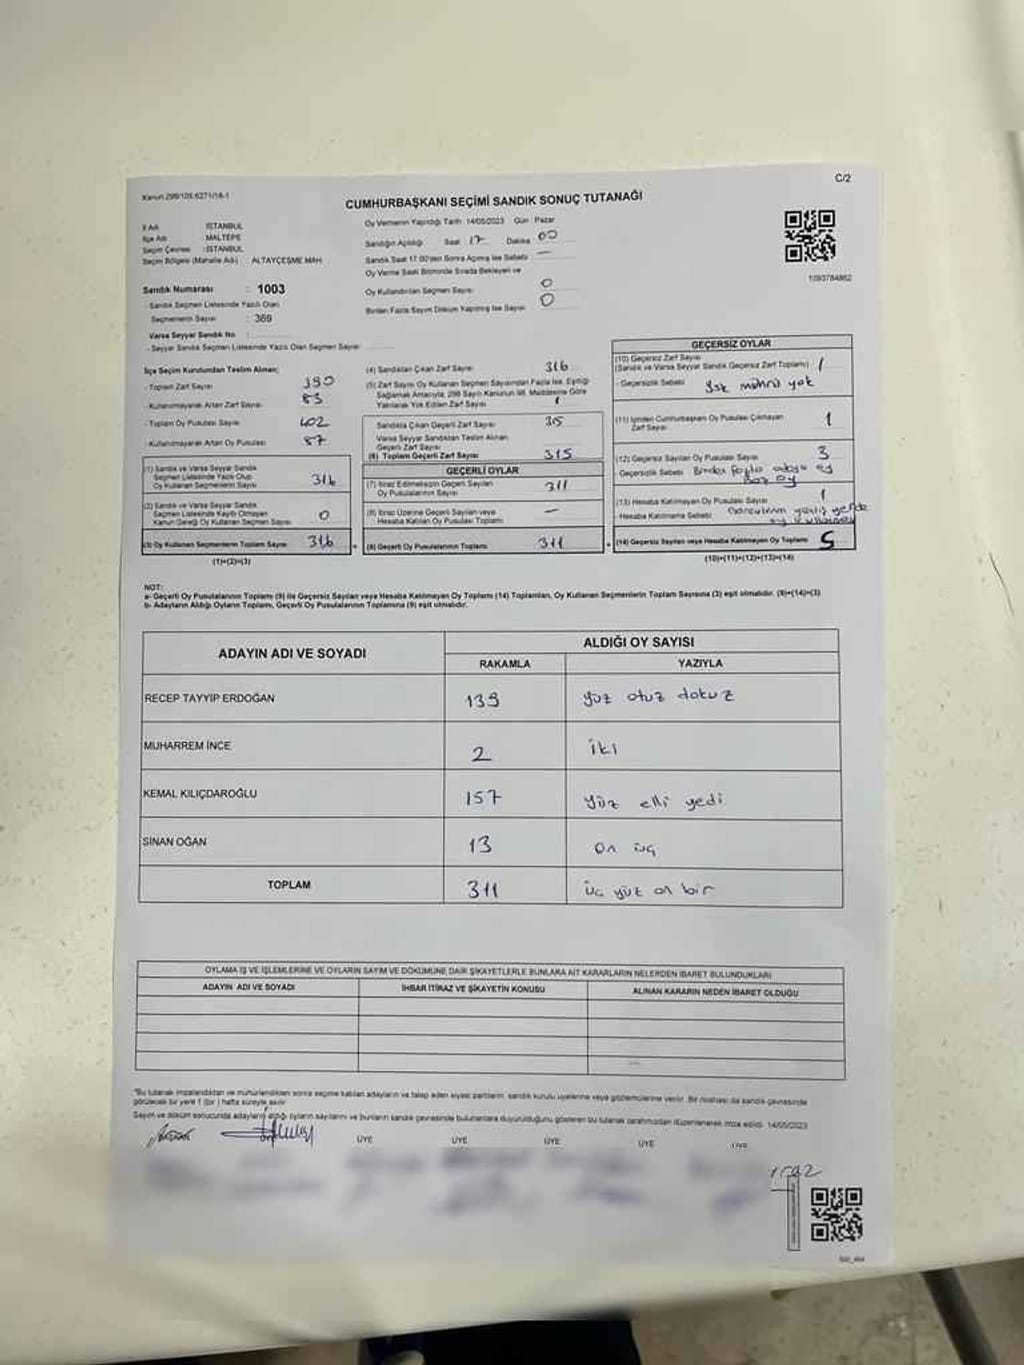 C/2
Kanun:299/105,6271/14-1
CUMHURBAŞKANI SEÇİMİ SANDIK SONUÇ TUTANAĞI
İl Adı : İSTANBUL
İlçe Adı : MALTEPE
Seçim Çevresi : İSTANBUL
Seçim Bölgesi (Mahalle Adı) : ALTAYÇEŞME MAH.
Oy Vermenin Yapıldığı Tarih: 14/05/2023 Gün: Pazar
Sandığın Açıldığı Saat 17 Dakika 00
Sandık Saat 17.00'den Sonra Açılmış İse Sebebi —
Oy Verme Saati Bitiminde Sırada Bekleyen ve
Oy Kullandırılan Seçmen Sayısı 0
Birden Fazla Sayım Döküm Yapılmış İse Sayısı 0
1093784862
Sandık Numarası : 1003
- Sandık Seçmen Listesinde Yazılı Olan
Seçmenlerin Sayısı : 369
Varsa Seyyar Sandık No :
- Seyyar Sandık Seçmen Listesinde Yazılı Olan Seçmen Sayısı
İlçe Seçim Kurulundan Teslim Alınan;
- Toplam Zarf Sayısı 390
- Kullanılmayarak Artan Zarf Sayısı 83
- Toplam Oy Pusulası Sayısı 402
- Kullanılmayarak Artan Oy Pusulası 87
(1) Sandık ve Varsa Seyyar Sandık
Seçmen Listesinde Yazılı Olup
Oy Kullanan Seçmenlerin Sayısı 316
(2) Sandık ve Varsa Seyyar Sandık
Seçmen Listesinde Kayıtlı Olmayan
Kanun Gereği Oy Kullanan Seçmen Sayısı 0
(3) Oy Kullanan Seçmenlerin Toplam Sayısı 316
(1)+(2)=(3)
(4) Sandıktan Çıkan Zarf Sayısı 316
(5) Zarf Sayısı Oy Kullanan Seçmen Sayısından Fazla İse, Eşitliği
Sağlamak Amacıyla, 298 Sayılı Kanunun 98. Maddesine Göre
Yakılarak Yok Edilen Zarf Sayısı
Sandıkta Çıkan Geçerli Zarf Sayısı 315
Varsa Seyyar Sandıktan Teslim Alınan
Geçerli Zarf Sayısı
(6) Toplam Geçerli Zarf Sayısı 315
GEÇERLİ OYLAR
(7) İtiraz Edilmeksizin Geçerli Sayılan
Oy Pusulalarının Sayısı 311
(8) İtiraz Üzerine Geçerli Sayılan veya
Hesaba Katılan Oy Pusulası Toplamı —
(9) Geçerli Oy Pusulalarının Toplamı 311
GEÇERSİZ OYLAR
(10) Geçersiz Zarf Sayısı
(Sandık ve Varsa Seyyar Sandık Geçersiz Zarf Toplamı) 1
- Geçersizlik Sebebi Ysk mührü yok
(11) İçinden Cumhurbaşkanı Oy Pusulası Çıkmayan
Zarf Sayısı 1
(12) Geçersiz Sayılan Oy Pusulası Sayısı 3
- Geçersizlik Sebebi Birden fazla adaya oy
boz oy
(13) Hesaba Katılmayan Oy Pusulası Sayısı
- Hesaba Katılmama Sebebi yanlış yerde
oy kullanması
(14) Geçersiz Sayılan veya Hesaba Katılmayan Oy Toplamı 5
(10)+(11)+(12)+(13)=(14)
NOT:
a- Geçerli Oy Pusulalarının Toplamı (9) ile Geçersiz Sayılan veya Hesaba Katılmayan Oy Toplamı (14) Toplamları, Oy Kullanan Seçmenlerin Toplam Sayısına (3) eşit olmalıdır. (9)+(14)=(3)
b- Adayların Aldığı Oyların Toplamı, Geçerli Oy Pusulalarının Toplamına (9) eşit olmalıdır.
ADAYIN ADI VE SOYADI ALDIĞI OY SAYISI
RAKAMLA YAZIYLA
RECEP TAYYİP ERDOĞAN 139 yüz otuz dokuz
MUHARREM İNCE 2 iki
KEMAL KILIÇDAROĞLU 157 yüz elli yedi
SİNAN OĞAN 13 on üç
TOPLAM 311 üç yüz on bir
OYLAMA İŞ VE İŞLEMLERİNE VE OYLARIN SAYIM VE DÖKÜMÜNE DAİR ŞİKAYETLERLE BUNLARA AİT KARARLARIN NELERDEN İBARET BULUNDUKLARI
ADAYIN ADI VE SOYADI İHBAR İTİRAZ VE ŞİKAYETİN KONUSU ALINAN KARARIN NEDEN İBARET OLDUĞU
"Bu tutanak imzalandıktan ve mühürlendikten sonra seçime katılan adayların ve talep eden siyasi partilerin, sandık kurulu üyelerine veya gözlemcilerine verilir. Bir nüshası da sandık çevresinde
görülecek bir yere 1 (bir) hafta süreyle asılır.
Sayım ve döküm sonucunda adayların aldığı oyların sayılarını ve bunların sandık çevresinde bulunanlara duyurulduğunu gösteren bu tutanak tarafımızdan düzenlenerek imza edildi. 14/05/2023
ÜYE ÜYE ÜYE ÜYE ÜYE